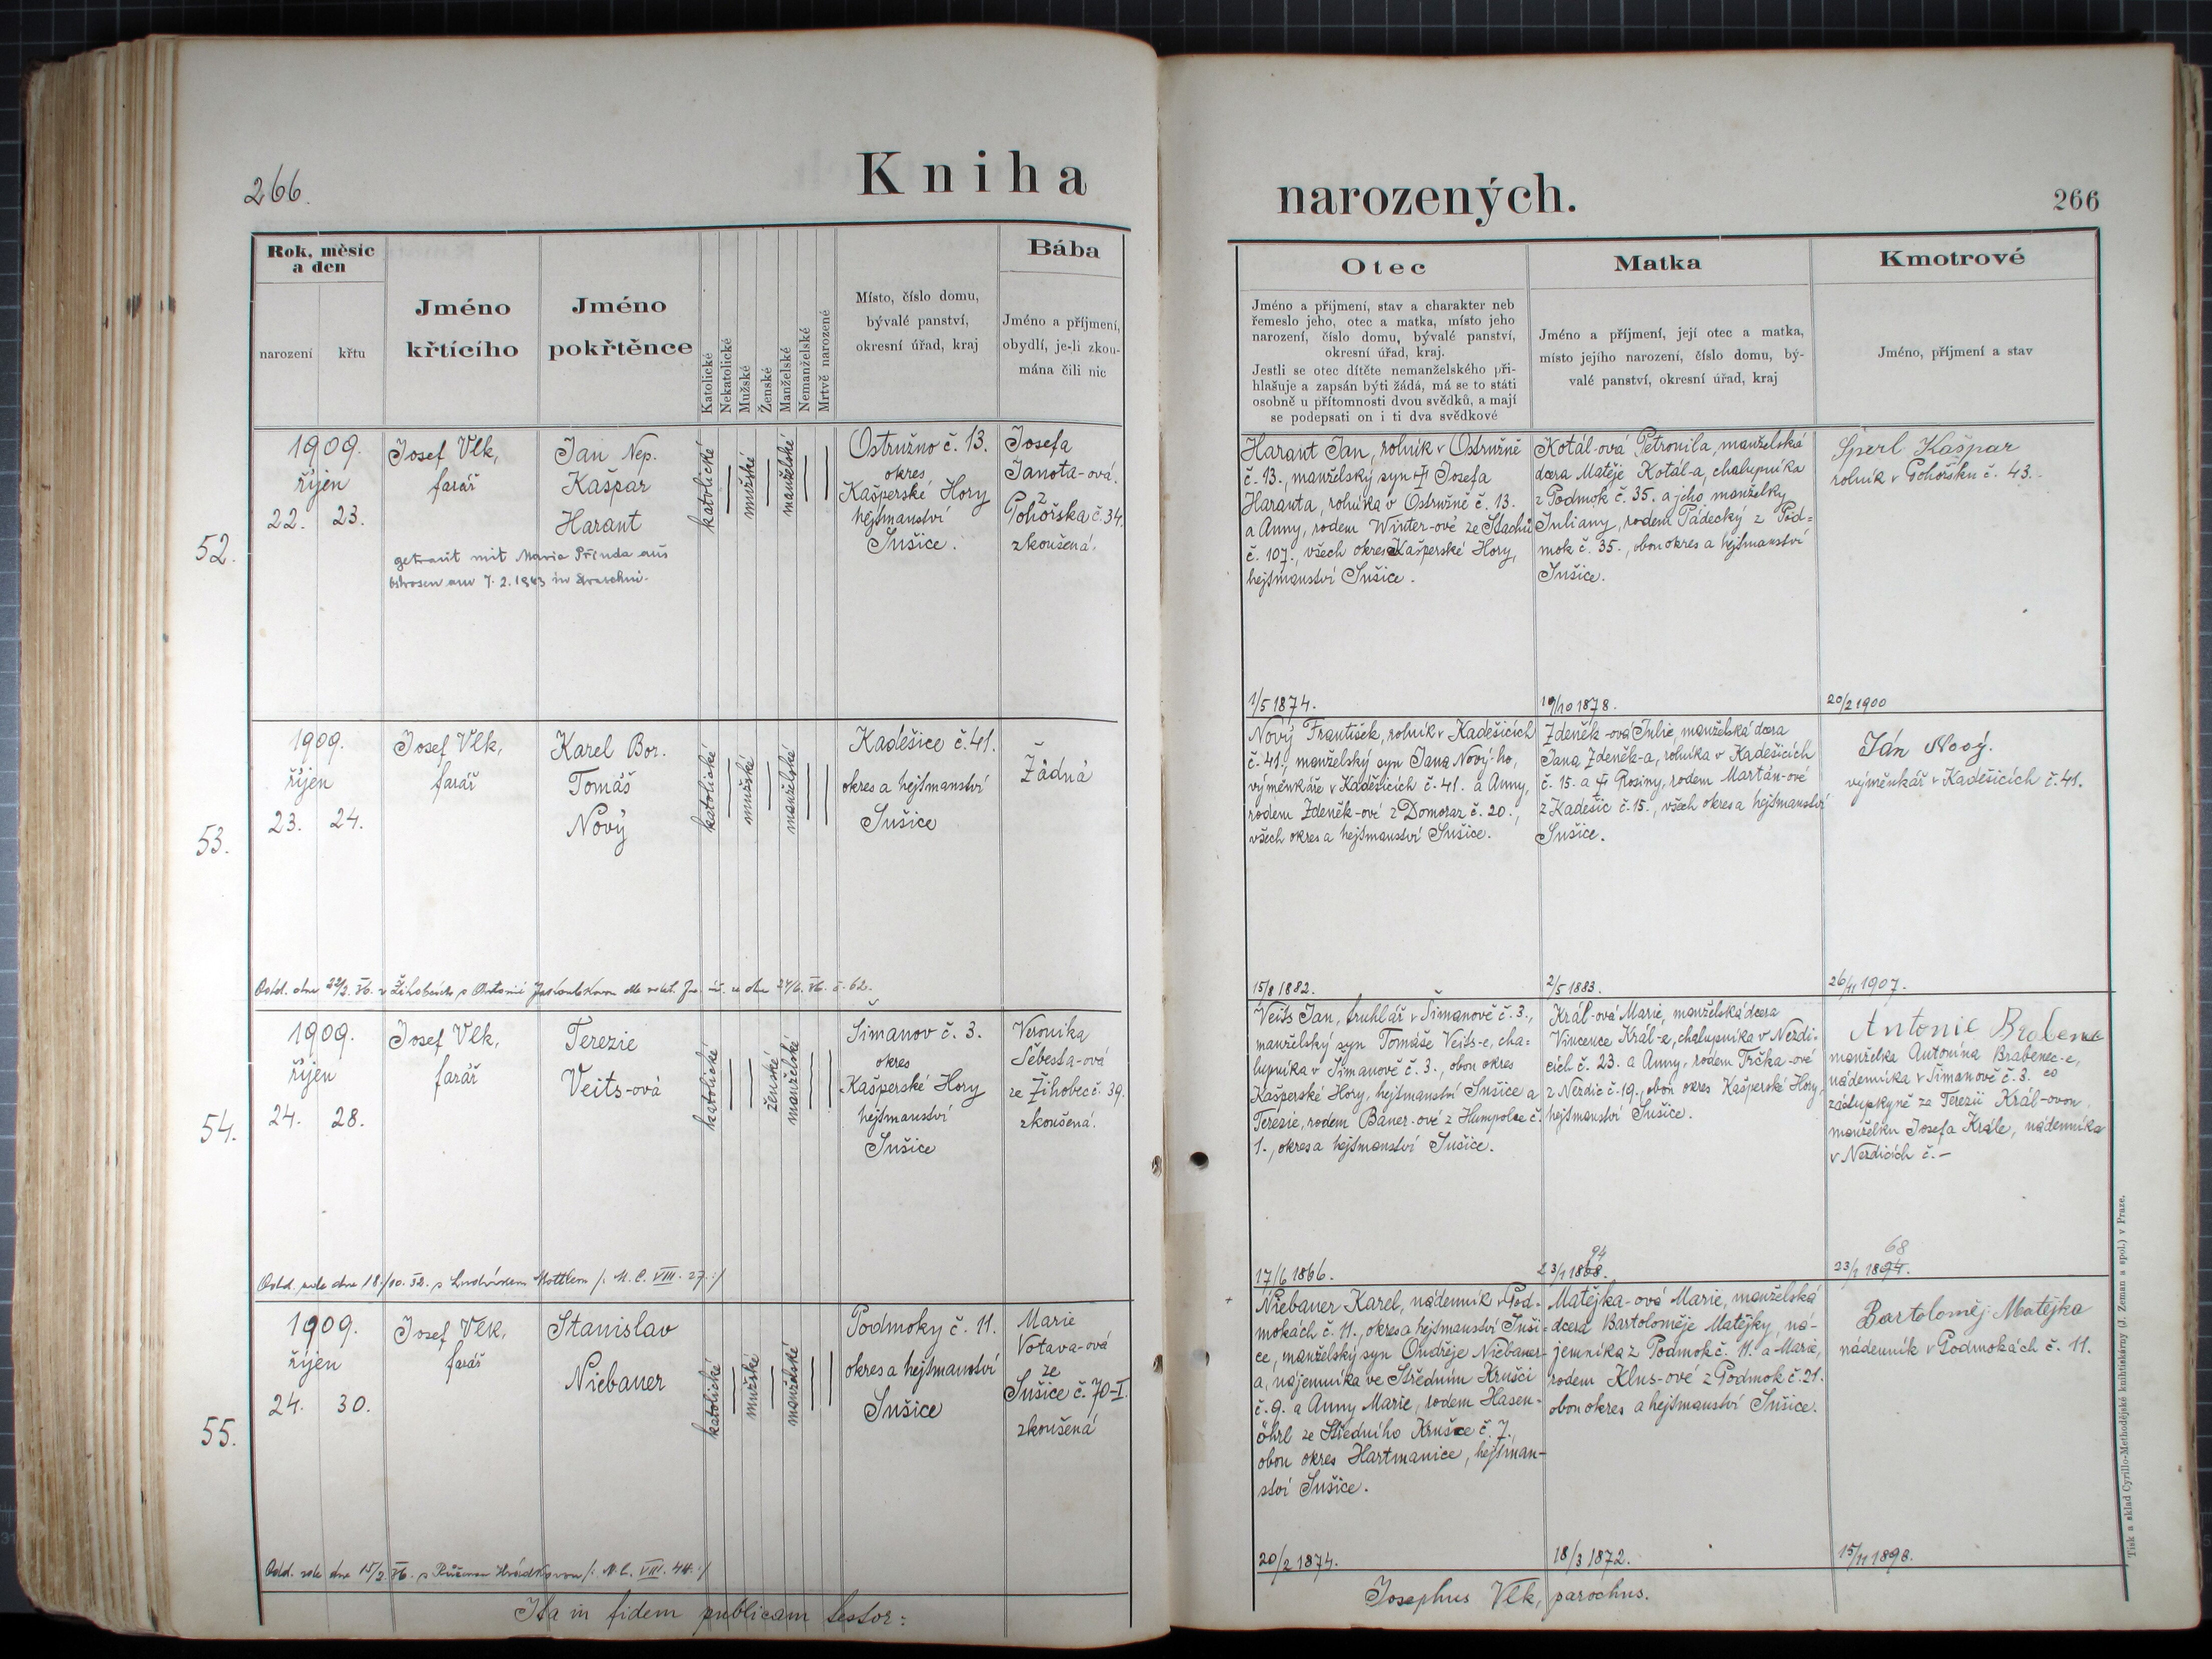 266.
Kniha
Rok, měsíc
a den
narození
křtu
Jméno
křtícího
Jméno
pokřtěnce
Katolické
Nekatolické
Mužské
Ženské
Manželské
Nemanželské
Mrtvě narozené
Místo, číslo domu,
bývalé panství,
okresní úřad, kraj
Bába
Jméno a příjmení,
obydlí, je-li zkou-
mána čili nic
52.
1909.
říjen
22. 23.
Josef Vlk,
farář
Jan Nep.
Kašpar
Harant
getraut mit Maria
am 7. 2. 1943 in
katolické
mužské
manželské
Ostružno č. 13.
okres
Kašperské Hory
hejtmanství
Sušice.
Josefa
Janota-ová.
z
Pohořska č. 34.
zkoušená.
53.
1909.
říjen
23. 24.
Josef Vlk,
farář
Karel Bor.
Tomáš
Nový
katolické
mužské
manželské
Kadešice č. 41.
okres a hejtmanství
Sušice
Žádná
Odd. dne
54.
1909.
říjen
24. 28.
Josef Vlk,
farář
Terezie
Veits-ová
katolické
ženské
manželské
Šimanov č. 3.
okres
Kašperské Hory
hejtmanství
Sušice
Veronika
Šebesta-ová
ze Žihobec č. 39.
zkoušená.
Odd. zde dne 18./10. 32. s Ludvíkem Mottlem /: M. C. VIII. 27. :/
55.
1909.
říjen
24. 30.
Josef Vlk,
farář
Stanislav
Niebauer
katolické
mužské
manželské
Podmoky č. 11.
okres a hejtmanství
Sušice
Marie
Votava-ová
ze
Sušice č. 70-I.
zkoušená
Odd. zde dne 15/2. 36. s Růženou Hrádkovou /: M. C. VIII. 44. :/
Ita in fidem publicam testor:
narozených.
266
Otec
Jméno a příjmení, stav a charakter neb
řemeslo jeho, otec a matka, místo jeho
narození, číslo domu, bývalé panství,
okresní úřad, kraj.
Jestli se otec dítěte nemanželského při-
hlašuje a zapsán býti žádá, má se to státi
osobně u přítomnosti dvou svědků, a mají
se podepsati on i ti dva svědkové
Matka
Jméno a příjmení, její otec a matka,
místo jejího narození, číslo domu, bý-
valé panství, okresní úřad, kraj
Kmotrové
Jméno, příjmení a stav
Harant Jan, rolník v Ostružně
č. 13., manželský syn † Josefa
Haranta, rolníka v Ostružně č. 13.
a Anny, rodem Winter-ové ze Stachů
č. 107., všech okres Kašperské Hory,
hejtmanství Sušice.
1/5 1874.
Kotál-ová Petronila, manželská
dcera Matěje Kotál-a, chalupníka
z Podmok č. 35. a jeho manželky
Juliany, rodem Pádecký z Pod-
mok č. 35., obou okres a hejtmanství
Sušice.
19/10 1878.
Šperl Kašpar
rolník v Pohořsku č. 43.
20/2 1900
Nový František, rolník v Kadešicích
č. 41., manželský syn Jana Nový-ho,
výměnkáře v Kadešicích č. 41. a Anny,
rodem Zdeněk-ové z Domoraz č. 20.,
všech okres a hejtmanství Sušice.
15/8 1882.
Zdeněk-ová Julie, manželská dcera
Jana Zdeněk-a, rolníka v Kadešicích
č. 15. a † Rosiny, rodem Martán-ové
z Kadešic č. 15., všech okres a hejtmanství
Sušice.
2/5 1883.
Ján Nový.
výměnkář v Kadešicích č. 41.
26/11 1907.
Veits Jan, truhlář v Šimanově č. 3.,
manželský syn Tomáše Veits-e, cha-
lupníka v Šimanově č. 3., obou okres
Kašperské Hory, hejtmanství Sušice a
Terezie, rodem Bauer-ové z Humpolce č.
1., okres a hejtmanství Sušice.
17/6 1866.
Král-ová Marie, manželská dcera
Vincence Král-e, chalupníka v Nezdi-
cích č. 23. a Anny, rodem Trčka-ové
z Nezdic č. 19., obou okres Kašperské Hory,
hejtmanství Sušice.
94
23/1 1868.
Antonie Brabenec
manželka Antonína Brabenec-e,
nádeníka v Šimanově č. 3. co
zástupkyně za Terezii Král-ovou
manželku Josefa Krále, nádenníka
v Nezdicích č. –
68
23/1 1894.
Niebauer Karel, nádenník v Pod-
mokách č. 11., okres a hejtmanství Suši-
ce, manželský syn Ondřeje Niebauer-
a, nájemníka ve Středním Krušci
č. 9. a Anny Marie, rodem Hasen-
öhrl ze Středního Krušce č. 7.,
obou okres Hartmanice, hejtman-
ství Sušice.
20/2 1874.
Matějka-ová Marie, manželská
dcera Bartoloměje Matějky, ná-
jemníka z Podmok č. 11. a Marie,
rodem Klus-ové z Podmok č. 21.
obou okres a hejtmanství Sušice.
18/3 1872.
Bartoloměj Matějka
nádenník v Podmokách č. 11.
15/11 1898.
Josephus Vlk, parochus.
Tisk a sklad Cyrillo-Methodějské knihtiskárny (J. Zeman a spol.) v Praze.